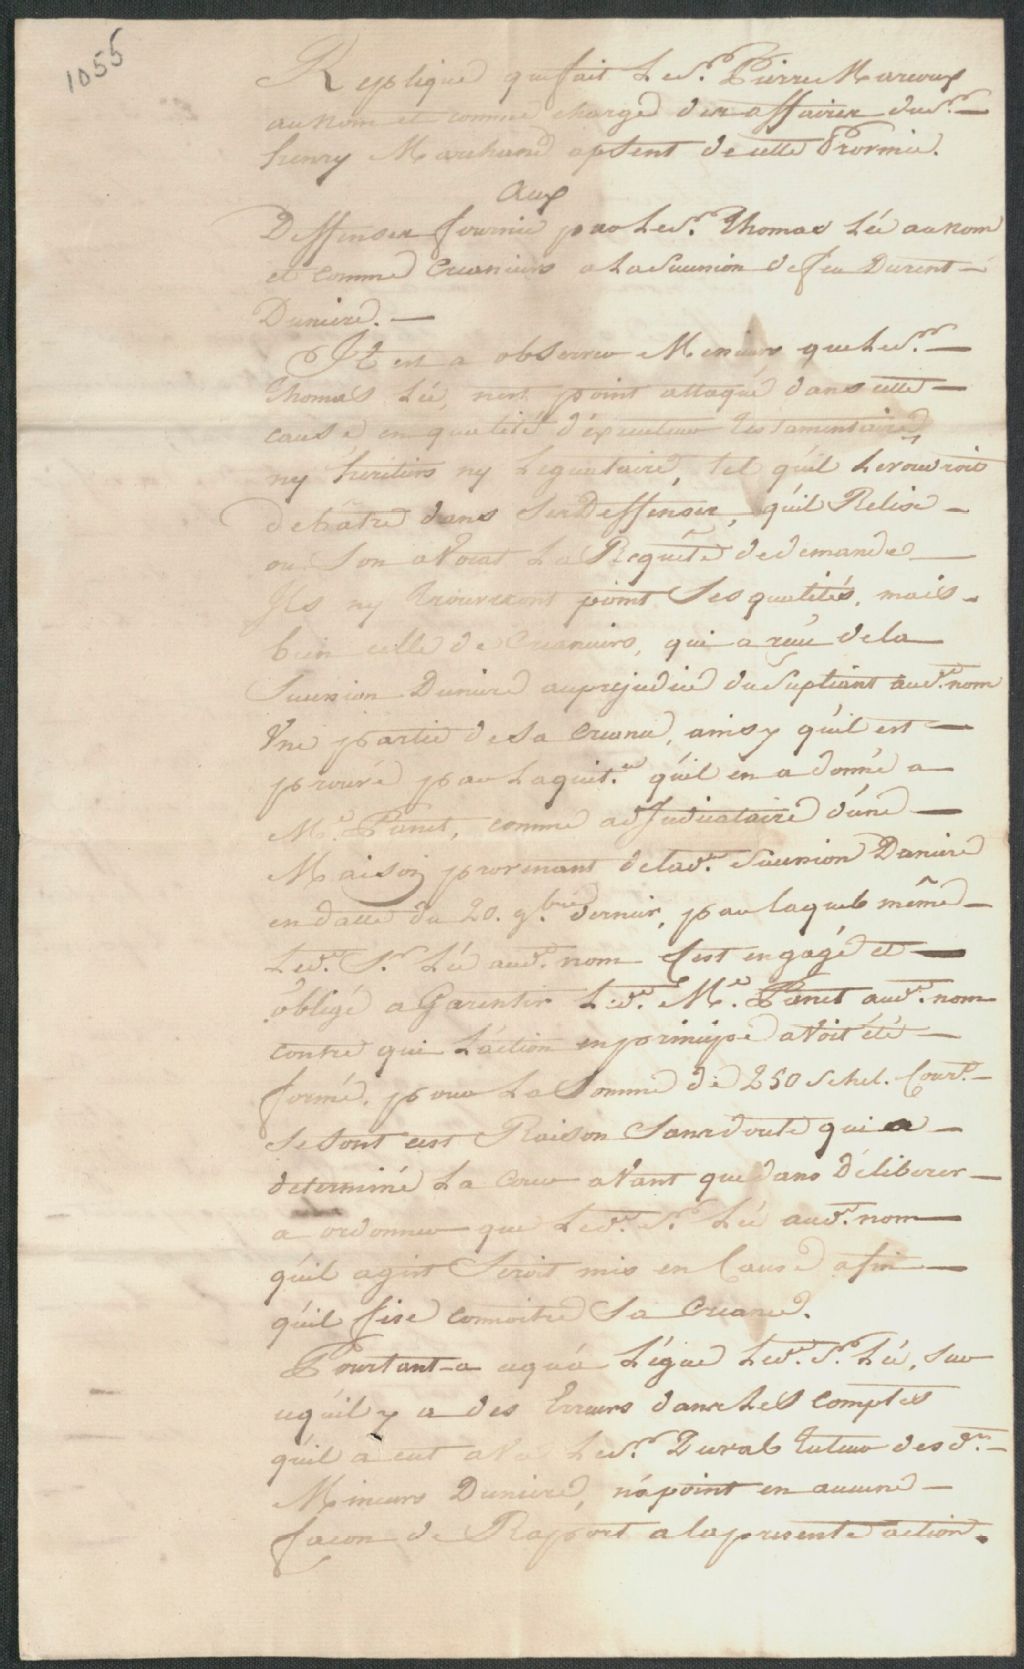 1055
Replique que fait Led.r Pierre Marcoux
au nom et comme chargé des affaires dud.r
henry Marchand absent de cette Province.
Aux
Deffenses fournie par Led.r Thomas Lée au nom
et comme Creancier a La Sucession de feu
Duniere.
Il est a observer Messieurs que Led.r
Thomas Lée, nest point attaqué dans cette
cause en qualité d'éxecuteur testamentaire
ny heritiers ny Leguataire, tel qu'il Le voudroit
debatre dans ses Deffenses, qu'il Relise
ou Son avocat La Requête de demande
Ils ny trouveront point Ses qualités, mais
bien celle de Creancier, qui a reçu de la
Sucession Duniere au prejudice du Supliant aud.t nom
Une partie de Sa Creance, ainsy qu'il est
prouvé par La quit.ce qu'il en a donné a
M.e Panet, comme adjudicataire d'une
Maison provenant de lad.e Sucession Duniere
en datte du 20. 9.bre dernier, par laquelle même
Led.t S.r Lée aud.t nom Sest engagé et
obligé a Garentir Led.t M.e Panet aud.t nom
contre qui L'action en principe avoit été
formé, pour La Somme de 250 Schel. Cour.t
Se sont ces Raison Sans doute qui a
determiné La Cour avant que dans Déliberer
a ordonner que Led.t S.r Lée aud.t nom
qu'il agist Seroit mis en Cause afin
qu'il fise connoitre Sa Creance.
Pourtant a ce qu'a Légue Led.t S.r Lée, Sur
ce qu'il y a des Erreurs dans Les comptes
qu'il a eut avec Led.r Duval tuteur des d.ts
Mineurs Duniere, n'a point en aucune
facon de Raport a la presente action.